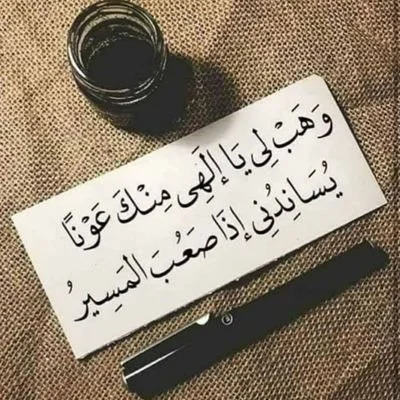 وَهَبْ لِي يَا إِلٰهِي مِنْكَ عَوْنًا
يُسَانِدُنِي إِذَا صَعُبَ الْمَسِيرُ